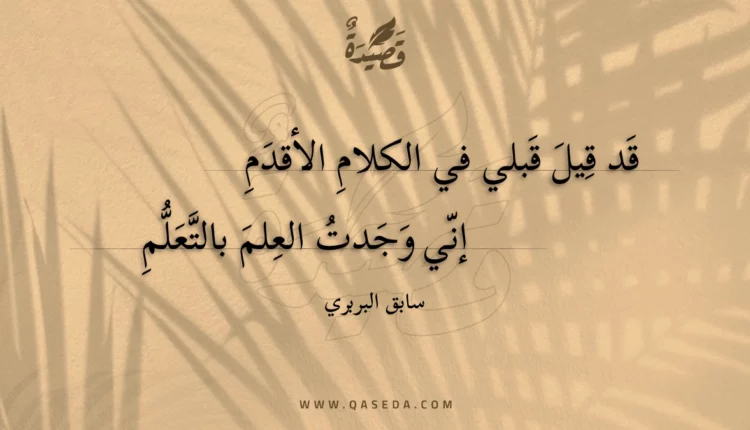 قَصِيْدَةٌ
قَد قِيلَ قَبلي في الكلامِ الأقدَمِ
إنّي وَجَدتُ العِلمَ بالتَّعَلُّمِ
سابق البربري
WWW.QASEDA.COM